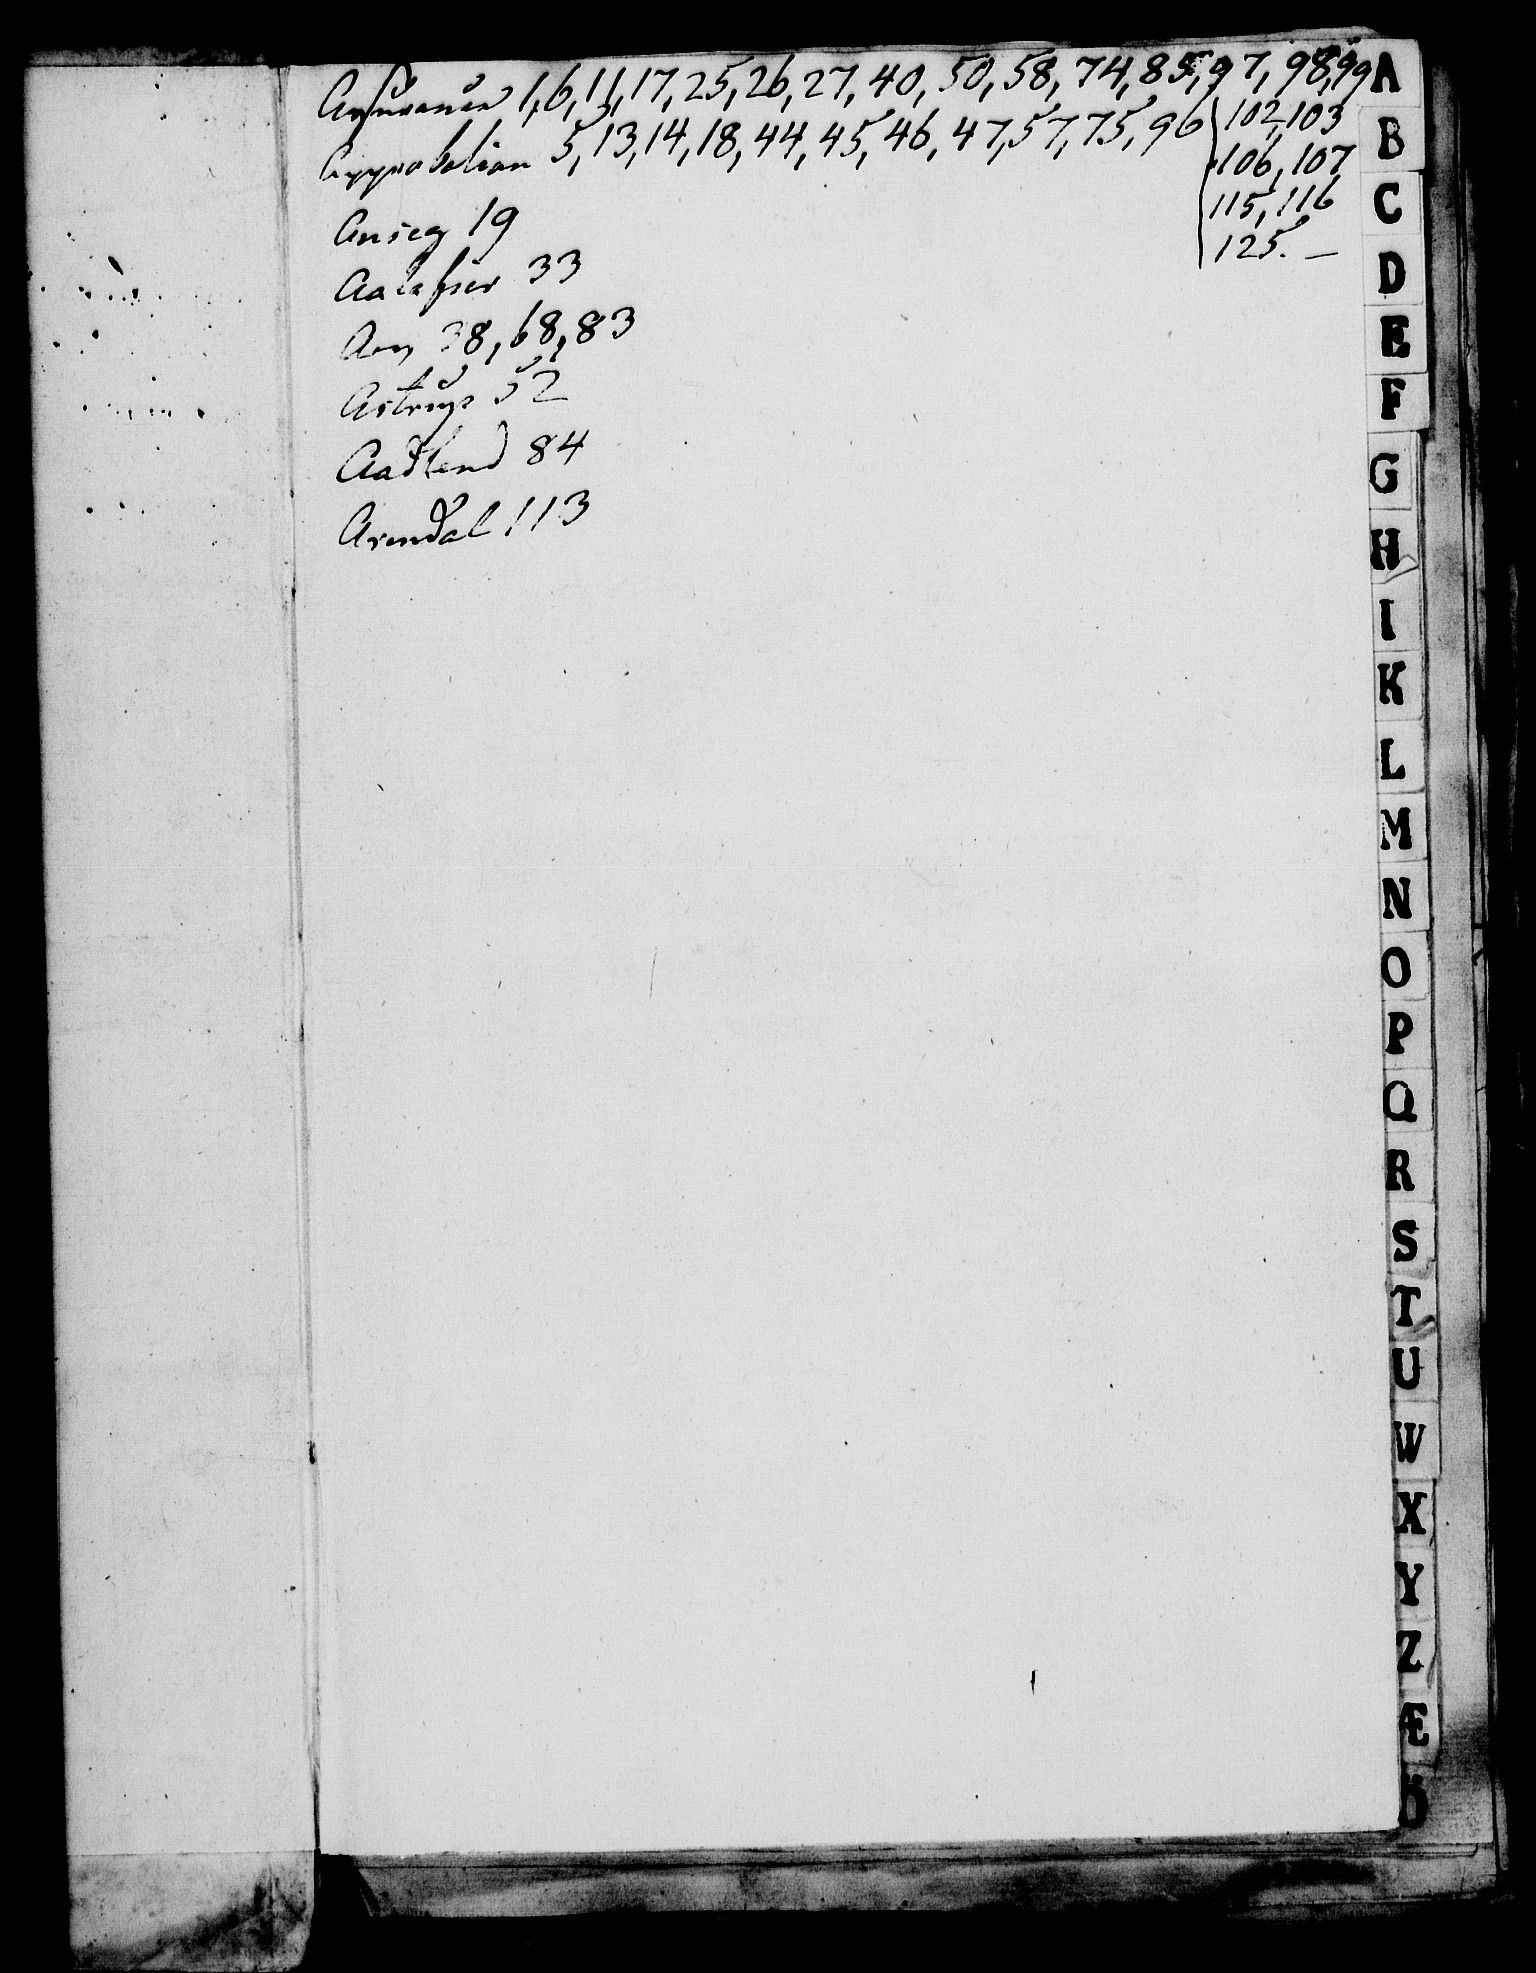 Assurancer 1, 6, 11, 17, 25, 26, 27, 40, 50, 58, 74, 85, 97, 98, 99
102, 103
106, 107
115, 116
125. —
Approbation 5, 13, 14, 18, 44, 45, 46, 47, 57, 75, 96
19
33
38, 68, 83
Astrup 52
Aadland 84
Arendal 113
A
B
C
D
E
F
G
H
I
K
L
M
N
O
P
Q
R
S
T
U
W
X
Y
Z
Æ
Ö